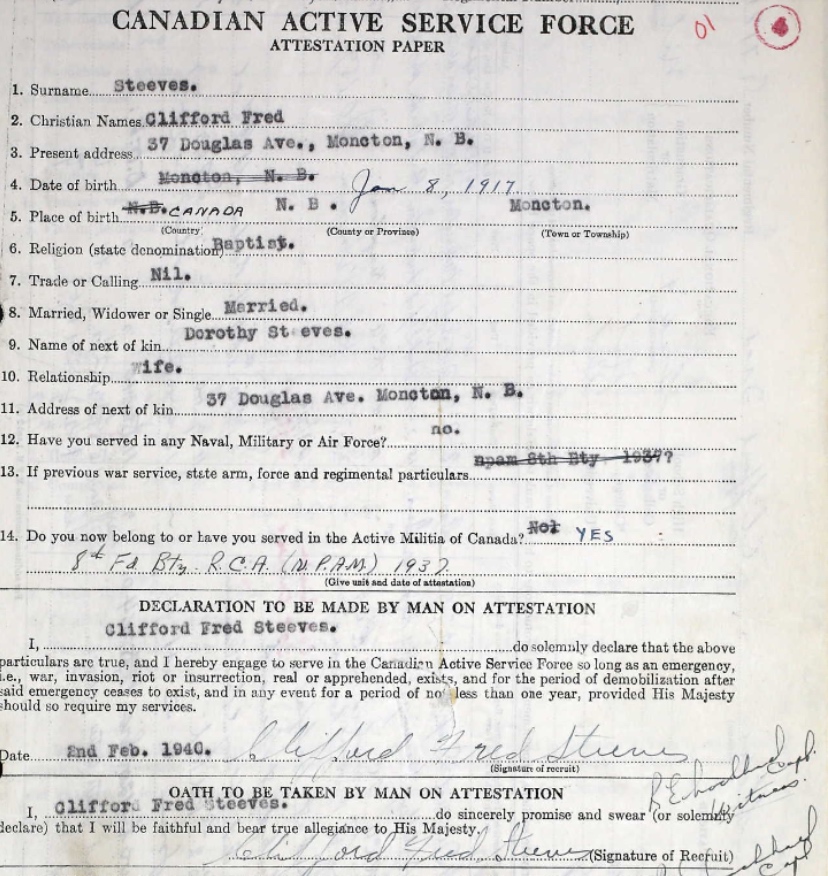 CANADIAN ACTIVE SERVICE FORCE
01 4
ATTESTATION PAPER
1. Surname Steeves.
2. Christian Names Clifford Fred
3. Present address 37 Douglas Ave., Moncton, N. B.
4. Date of birth Moncton, N. B. Jan 8, 1917
5. Place of birth N.B. CANADA N. B. Moncton.
(Country) (County or Province) (Town or Township)
6. Religion (state denomination) Baptist.
7. Trade or Calling Nil.
8. Married, Widower or Single Married.
9. Name of next of kin Dorothy St eves.
10. Relationship Wife.
11. Address of next of kin 37 Douglas Ave. Moncton, N. B.
12. Have you served in any Naval, Military or Air Force? no.
13. If previous war service, state arm, force and regimental particulars npam 8th Bty 1937?
14. Do you now belong to or have you served in the Active Militia of Canada? Not YES :
8th Fd Bty. R.C.A. (N.P.A.M.) 1937.
(Give unit and date of attestation)
DECLARATION TO BE MADE BY MAN ON ATTESTATION
Clifford Fred Steeves.
I, do solemnly declare that the above
particulars are true, and I hereby engage to serve in the Canadian Active Service Force so long as an emergency,
i.e., war, invasion, riot or insurrection, real or apprehended, exists, and for the period of demobilization after
said emergency ceases to exist, and in any event for a period of not less than one year, provided His Majesty
should so require my services.
Date 2nd Feb. 1940. Clifford Fred Steeves
(Signature of recruit)
Capt.
Witness.
OATH TO BE TAKEN BY MAN ON ATTESTATION
I, Clifford Fred Steeves. do sincerely promise and swear (or solemnly
declare) that I will be faithful and bear true allegiance to His Majesty.
Clifford Fred Steeves (Signature of Recruit)
Capt